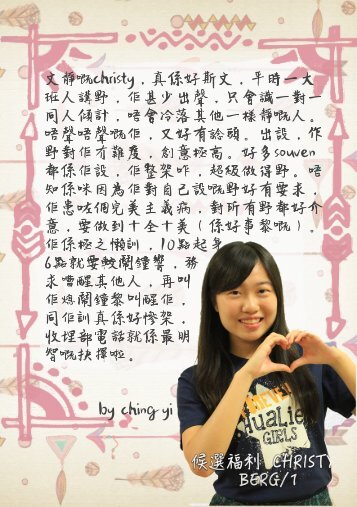 文靜嘅christy，真係好斯文，平時一大
班人講野，佢甚少出聲，只會識一對一
同人傾計，唔會冷落其他一樣靜嘅人。
唔聲唔聲嘅佢，又好有諗頭。出設，作
野對佢冇難度，創意極高。好多souven
都係佢設，佢整架咋，超級做得野。唔
知係咪因為佢對自己設嘅野好有要求，
佢患咗個完美主義病，對所有野都好介
意，要做到十全十美（係好事黎嘅）。
佢係極之懶訓，10點起身
6點就要較鬧鐘響，務
求嘈醒其他人，再叫
佢熄鬧鐘黎叫醒佢，
同佢訓真係好慘架，
收埋部電話就係最明
智嘅抉擇啦。
by ching yi
QUALIE
GIRLS
候選福利 CHRISTY
BERG/1